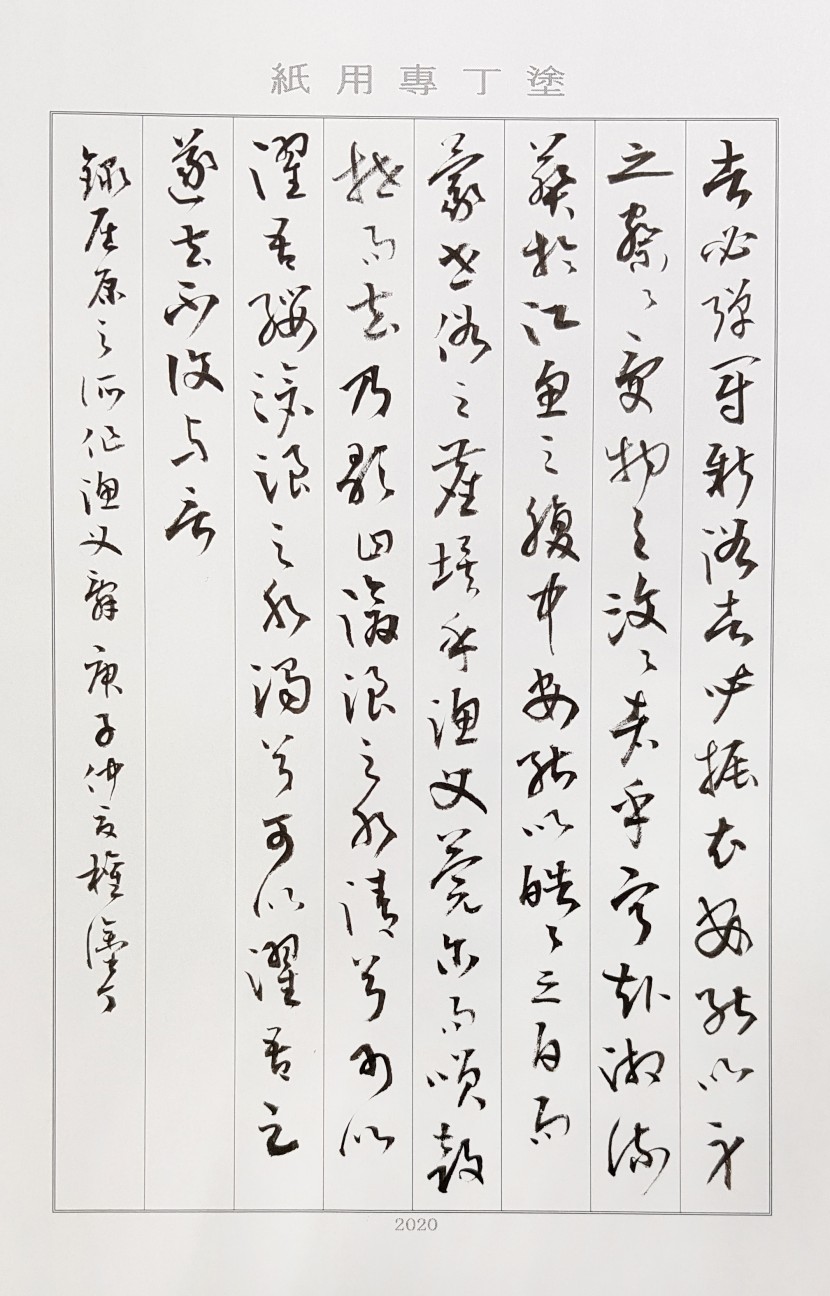 塗丁專用紙
者必彈冠新浴者必振衣安能以身
之察々受物之汶々者乎寧赴湘流
葬於江魚之腹中安能以皓々之白而
蒙世俗之塵埃乎漁父莞尓而咲鼓
枻而去乃歌曰滄浪之水清兮可以
濯吾纓滄浪之水濁兮可以濯吾足
遂去不復与言
錄屈原之所作漁父辭庚子仲夏權塗丁
2020